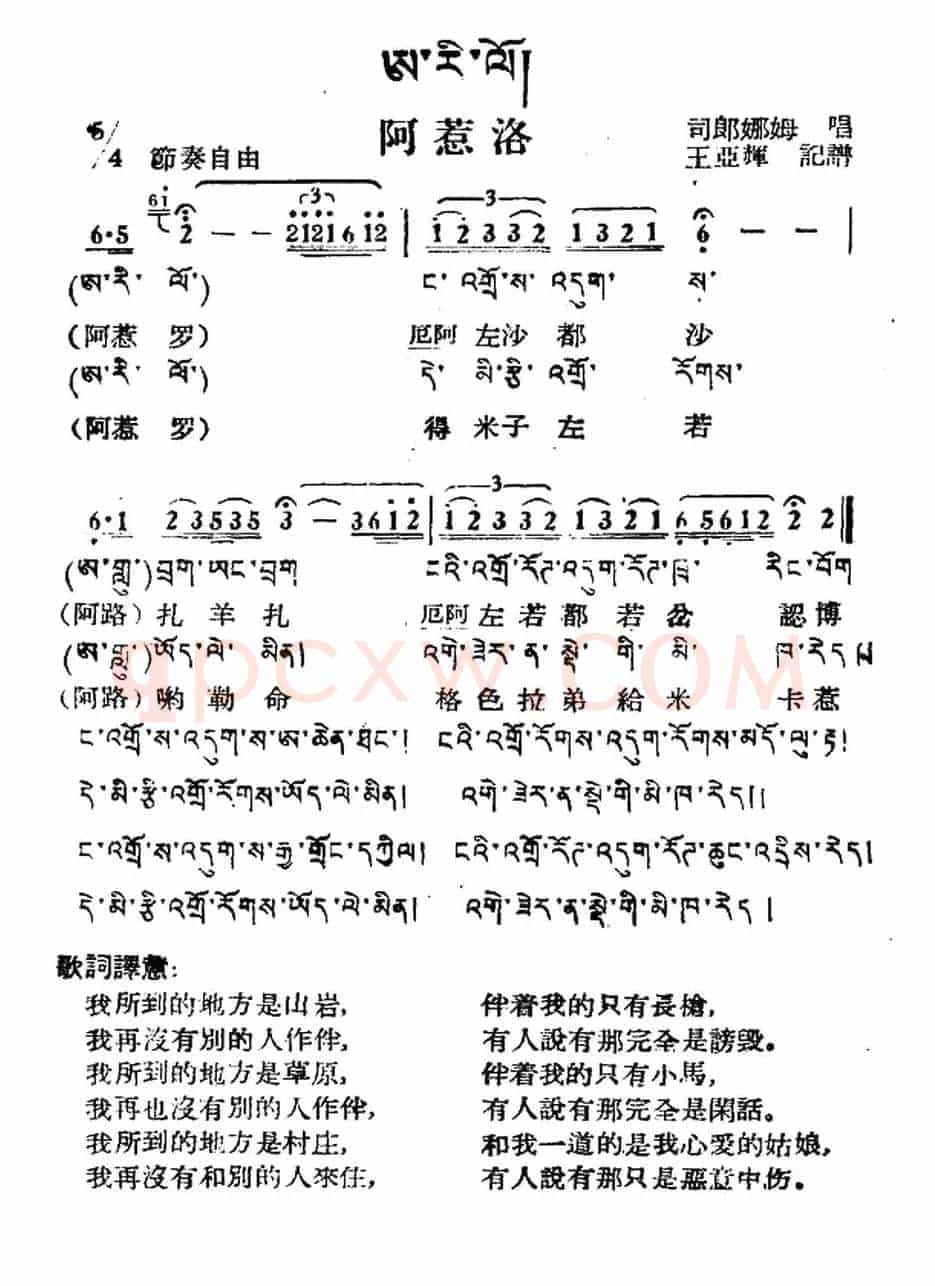 ཨ་རི་ལོ།
阿惹洛
司郎娜姆 唱
5/4 節奏自由 王亞輝 記譜
(ཨ་རི་ ལོ་) ང་ འགྲོ་ས་ འདུག་ ས་
(阿惹 罗) 厄阿 左沙 都 沙
(ཨ་རི་ ལོ་) དེ་ མི་རྩི་ འགྲོ་ རོགས་
(阿惹 罗) 得 米子 左 若
(ཨ་གླུ་)བྲག་ཨང་བྲག ངའི་འགྲོ་རོཊ་འདུག་རོཊ་ཁྲ་ རིང་བོག
(阿路) 扎 羊 扎 厄阿 左 若 都 若 岔 認 博
(ཨ་གླུ་)ཡོད་ལེ་ མིན། འགེ་ཟེར་ན་སྡེ་ གི་ མི་ ཁ་རེད།
(阿路) 喲 勒 命 格 色 拉 弟 給 米 卡 惹
qpcxw.COM
ང་འགྲོ་ས་འདུག་ས་ཨ་ཆེན་ཐང་། ངའི་འགྲོ་རོགས་འདུག་རོགས་མདོ་ལུ་རྟ།
དེ་མི་རྩི་འགྲོ་རོགས་ཡོད་ལེ་མིན། འགེ་ཟེར་ན་སྡེ་གི་མི་ཁ་རེད།།
ང་འགྲོ་ས་འདུག་ས་རྒྱ་གྲོང་དཀྱིལ། ངའི་འགྲོ་རོཊ་འདུག་རོཊ་ཆུང་འདྲིས་རེད།
དེ་མི་རྩི་འགྲོ་རོགས་ཡོད་ལེ་མིན། འགེ་ཟེར་ན་སྡེ་གི་མི་ཁ་རེད །
歌詞譯意:
我所到的地方是山岩, 伴着我的只有長槍,
我再沒有別的人作伴, 有人說有那完全是謗毁。
我所到的地方是草原, 伴着我的只有小馬,
我再也沒有別的人作伴, 有人說有那完全是閑話。
我所到的地方是村庄, 和我一道的是我心愛的姑娘,
我再沒有和別的人來住, 有人說有那只是惡意中伤。